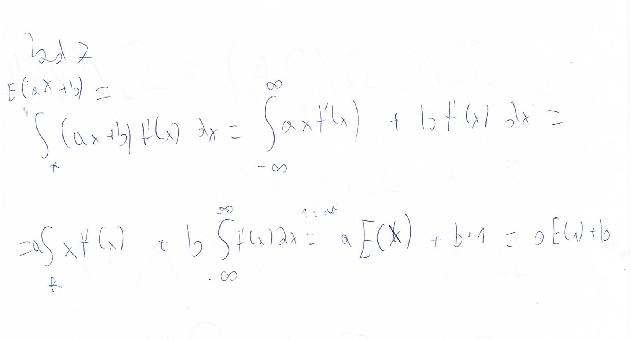 Zad 2
E(aX+b) =
∫ (ax+b) f(x) dx = ∫_{-∞}^{∞} ax f(x) + b f(x) dx =
= a∫ x f(x) + b ∫_{-∞}^{∞} f(x) dx = a E(X) + b·1 = a E(X)+b